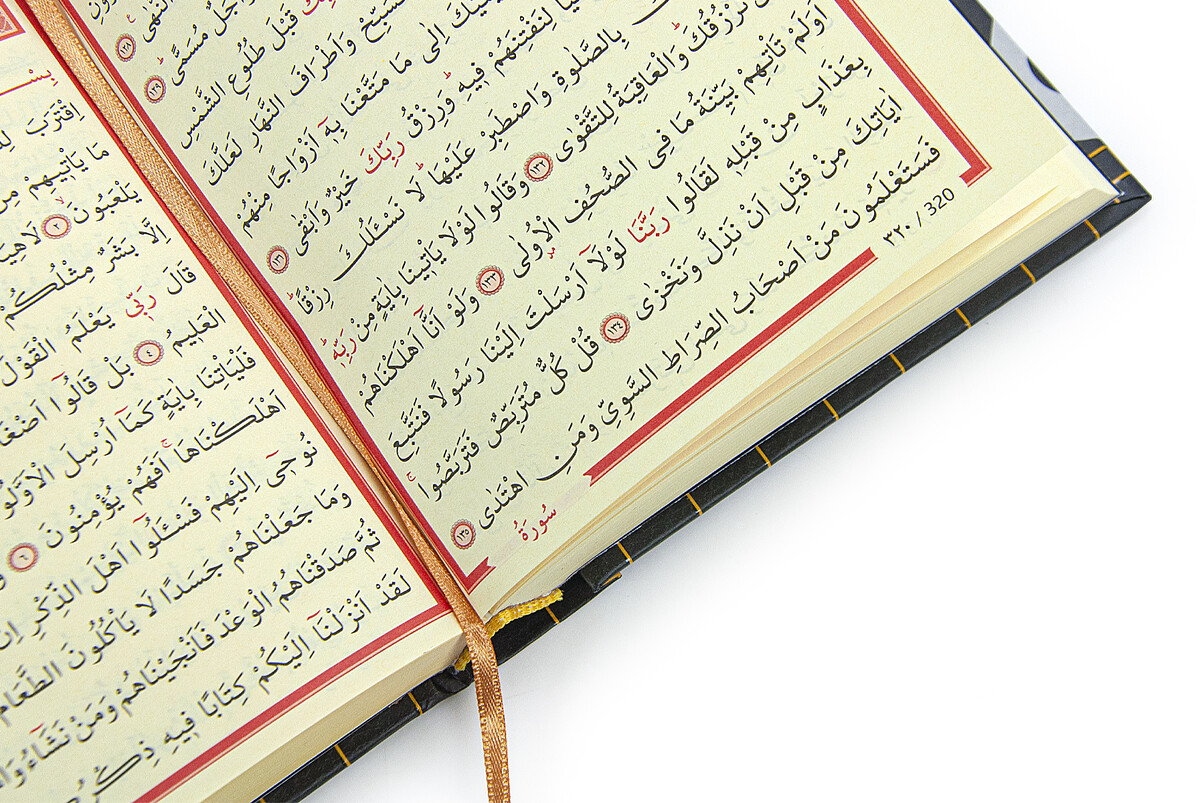 النُّهٰى ١٢٨
وَاَجَلٌ مُسَمًّى ١٢٩
قَبْلَ طُلُوعِ الشَّمْسِ
فَسَبِّحْ وَاَطْرَافَ النَّهَارِ لَعَلَّكَ
اِلٰى مَا مَتَّعْنَا بِه۪ٓ اَزْوَاجًا مِنْهُمْ
لِنَفْتِنَهُمْ ف۪يهِۜ وَرِزْقُ رَبِّكَ خَيْرٌ وَاَبْقٰى ١٣١
بِالصَّلٰوةِ وَاصْطَبِرْ عَلَيْهَاۜ لَا نَسْـَٔلُكَ رِزْقًاۜ
نَرْزُقُكَۜ وَالْعَاقِبَةُ لِلتَّقْوٰى ١٣٢ وَقَالُوا لَوْلَا يَأْت۪ينَا بِاٰيَةٍ مِنْ رَبِّه۪ۜ
اَوَلَمْ تَأْتِهِمْ بَيِّنَةُ مَا فِي الصُّحُفِ الْاُو۫لٰى ١٣٣ وَلَوْ اَنَّٓا اَهْلَكْنَاهُمْ
بِعَذَابٍ مِنْ قَبْلِه۪ لَقَالُوا رَبَّنَا لَوْلَٓا اَرْسَلْتَ اِلَيْنَا رَسُولًا فَنَتَّبِعَ
اٰيَاتِكَ مِنْ قَبْلِ اَنْ نَذِلَّ وَنَخْزٰى ١٣٤ قُلْ كُلٌّ مُتَرَبِّصٌ فَتَرَبَّصُواۚ
فَسَتَعْلَمُونَ مَنْ اَصْحَابُ الصِّرَاطِ السَّوِيِّ وَمَنِ اهْتَدٰى ١٣٥
٣٢٠ / 320
سُورَةُ
بِسْــ
اِقْتَرَبَ
مَا يَأْت۪يهِمْ مِنْ
يَلْعَبُونَۙ ٢ لَاهِيَةً
اِلَّا بَشَرٌ مِثْلُكُمْ
قَالَ رَبّ۪ي يَعْلَمُ الْقَوْلَ
الْعَل۪يمُ ٤ بَلْ قَالُٓوا اَضْغَاثُ
فَلْيَأْتِنَا بِاٰيَةٍ كَمَٓا اُرْسِلَ الْاَوَّلُونَ
اَهْلَكْنَاهَاۚ اَفَهُمْ يُؤْمِنُونَ ٦
نُوح۪ٓي اِلَيْهِمْ فَسْـَٔلُٓوا اَهْلَ الذِّكْرِ اِنْ
وَمَا جَعَلْنَاهُمْ جَسَدًا لَا يَأْكُلُونَ الطَّعَامَ
ثُمَّ صَدَقْنَاهُمُ الْوَعْدَ فَاَنْجَيْنَاهُمْ وَمَنْ نَشَٓاءُ
لَقَدْ اَنْزَلْنَٓا اِلَيْكُمْ كِتَابًا ف۪يهِ ذِكْرُكُمْ